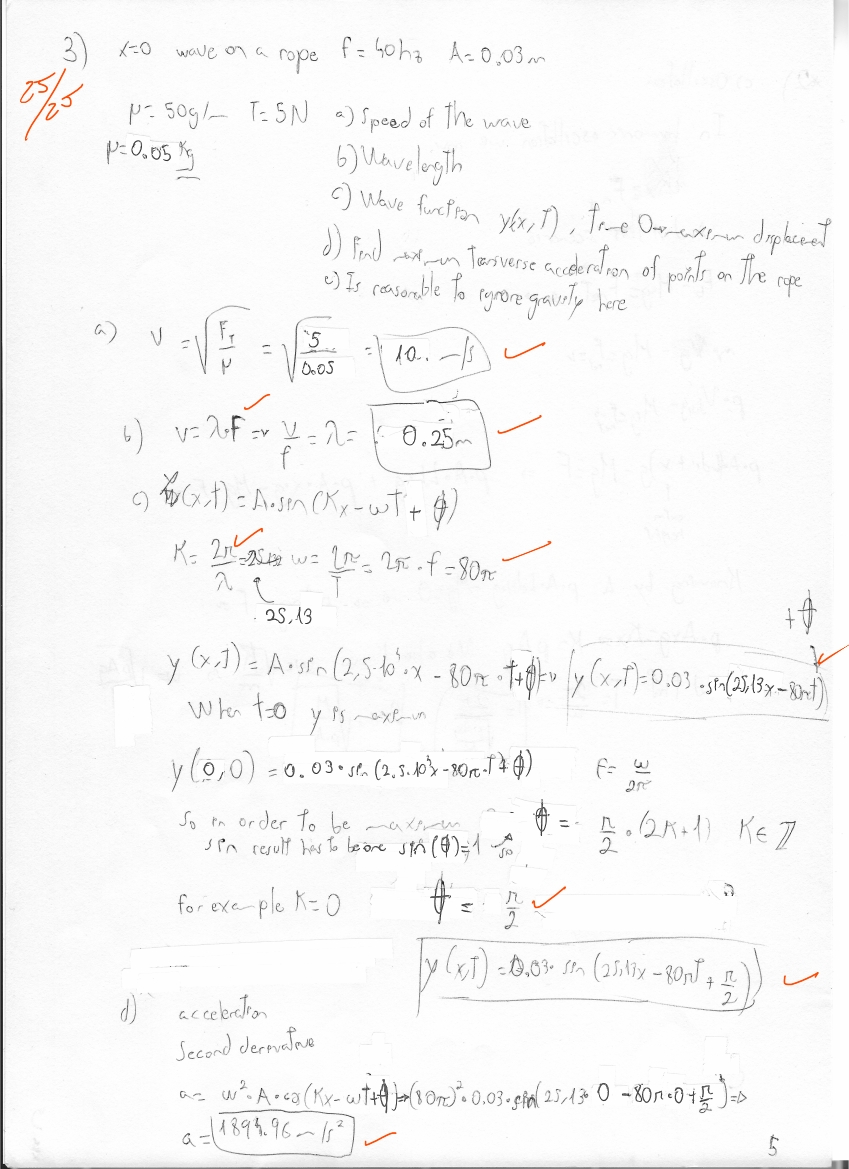 3) x=0 wave on a rope f=40hz A=0,03m
25/25
μ=50g/m T=5N a) Speed of the wave
μ=0.05 Kg
b) Wavelength
c) Wave function y(x,T), time 0→maximum displacement
d) Find maximum transverse acceleration of points on the rope
e) Is reasonable to ignore gravity here
a) V = √(F_T/μ) = √(5/0.05) = 10. m/s
b) v=λ·F => v/f = λ = 0.25m
c) y(x,t) = A·sin(Kx-ωt+ϕ)
K= 2π/λ = ω= 2π/T = 2π·f = 80π
25,13
+ϕ
y(x,T) = A·sin(2,5·10¹·x - 80π·T+ϕ)=> y(x,T)=0.03·sin(25,13x-80πt)
When t=0 y is maximum
y(0,0) = 0.03·sin(2.5.10¹x-80π·T+ϕ) f= ω/2π
So in order to be maximum ϕ = π/2·(2K+1) K∈ℤ
sin result has to be one sin(ϕ)=1 so
for example K=0 ϕ = π/2
y(x,T) = 0.03· sin (25,13x-80πT+π/2)
d) acceleration
Second derivative
a= ω²·A·cos(Kx-ωt+ϕ)→(80π)²·0.03·sin(25,13·0-80π·0+π/2)=>
a= 1894.96 m/s²
5